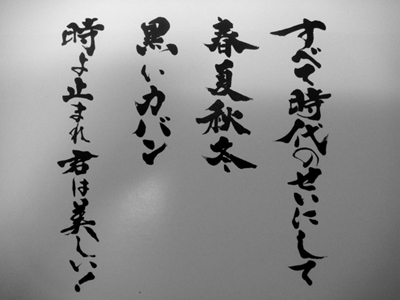 すべて時代のせいにして
春夏秋冬
黒いカバン
時よ止まれ君は美しい!